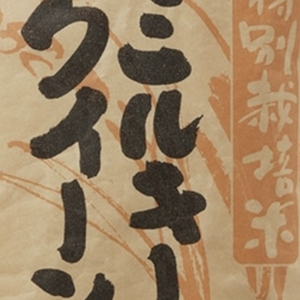 特別栽培米
ミルキー
クイーン